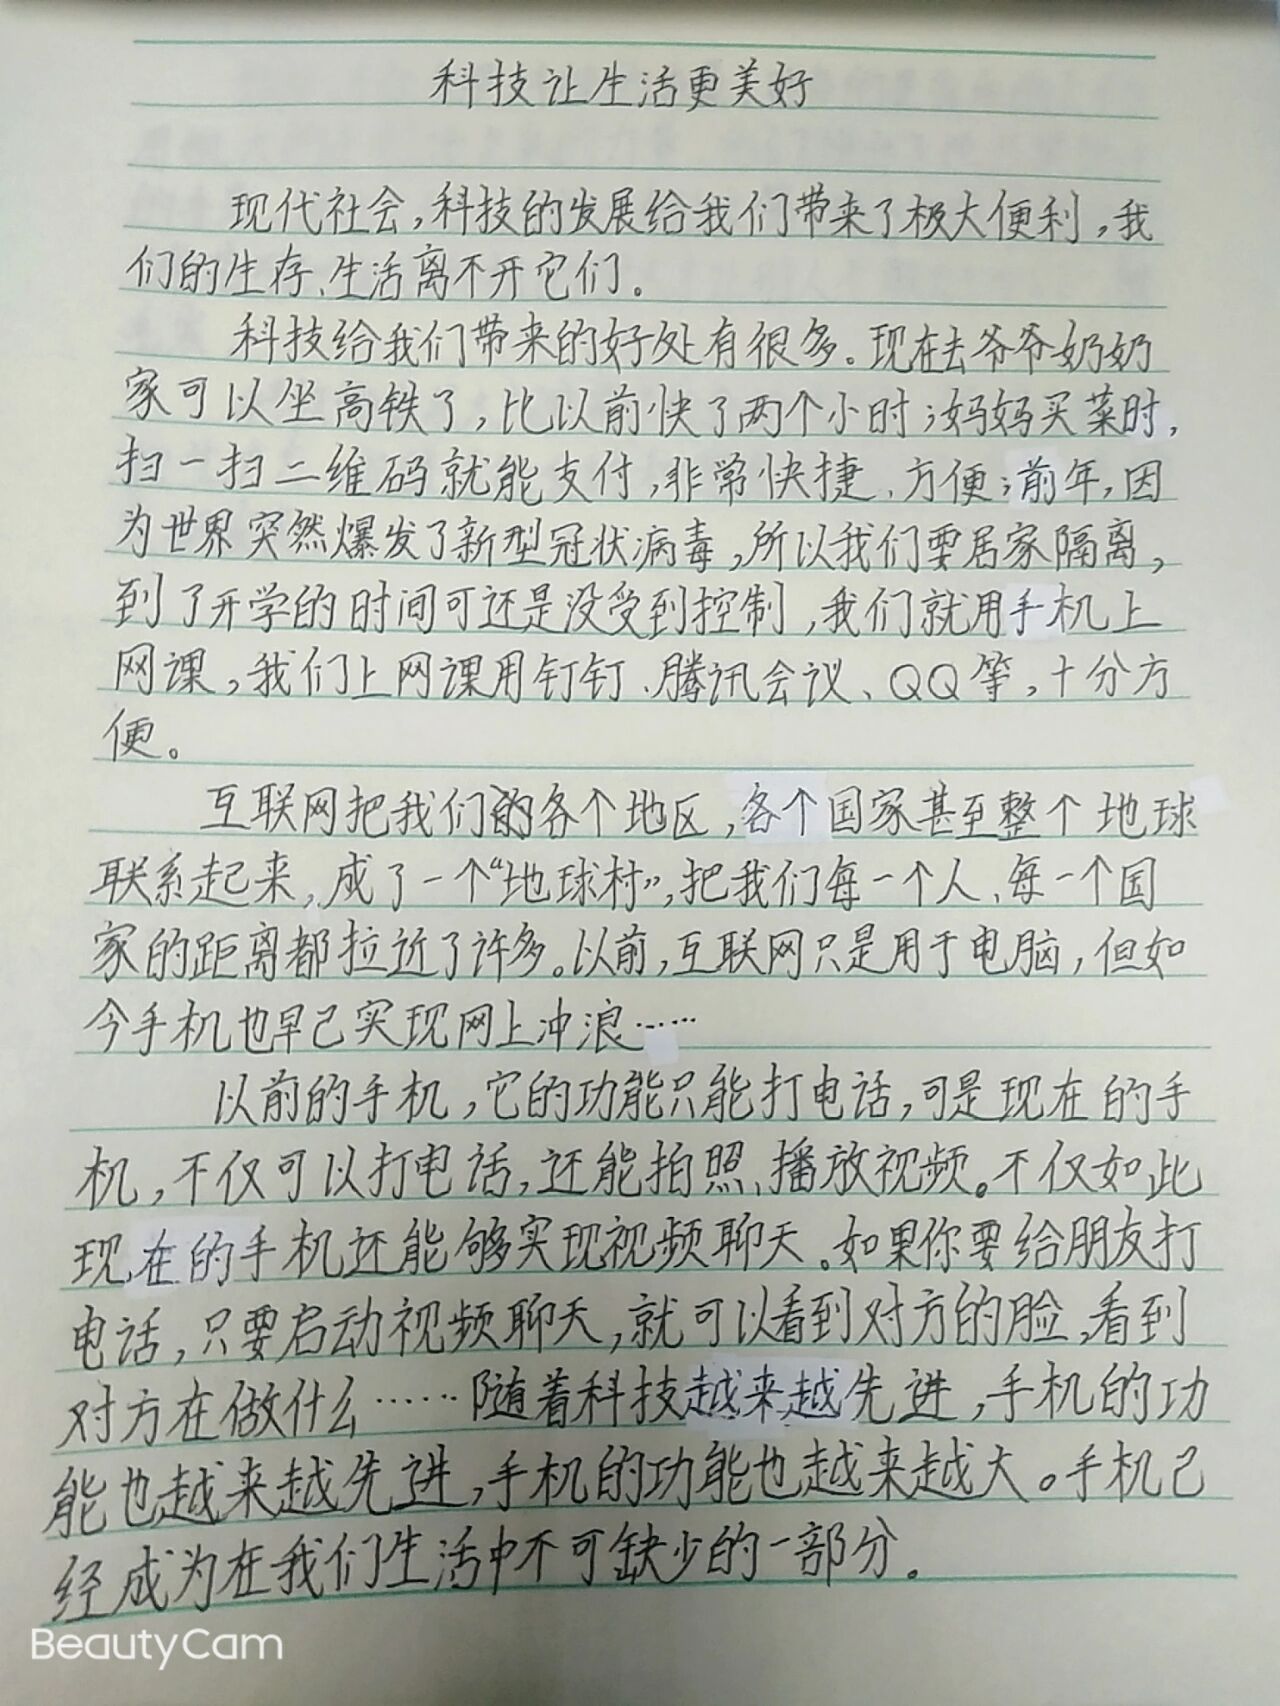 科技让生活更美好
现代社会，科技的发展给我们带来了极大便利，我
们的生存、生活离不开它们。
科技给我们带来的好处有很多。现在去爷爷奶奶
家可以坐高铁了，比以前快了两个小时；妈妈买菜时，
扫一扫二维码就能支付，非常快捷、方便；前年，因
为世界突然爆发了新型冠状病毒，所以我们要居家隔离，
到了开学的时间可还是没受到控制，我们就用手机上
网课，我们上网课用钉钉、腾讯会议、QQ等，十分方
便。
互联网把我们的各个地区，各个国家甚至整个地球
联系起来，成了一个“地球村”，把我们每一个人、每一个国
家的距离都拉近了许多。以前，互联网只是用于电脑，但如
今手机也早已实现网上冲浪……
以前的手机，它的功能只能打电话，可是现在的手
机，不仅可以打电话，还能拍照、播放视频。不仅如此
现在的手机还能够实现视频聊天。如果你要给朋友打
电话，只要启动视频聊天，就可以看到对方的脸，看到
对方在做什么……随着科技越来越先进，手机的功
能也越来越先进，手机的功能也越来越大。手机已
经成为在我们生活中不可缺少的一部分。
BeautyCam